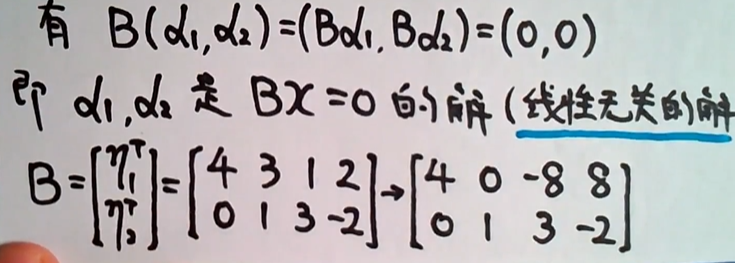 有 B(α₁,α₂)=(Bα₁,Bα₂)=(0,0)
即 α₁,α₂ 是 BX=0 的解(线性无关的解
B=[η₁ᵀ; η₂ᵀ]=[4 3 1 2; 0 1 3 -2]→[4 0 -8 8; 0 1 3 -2]